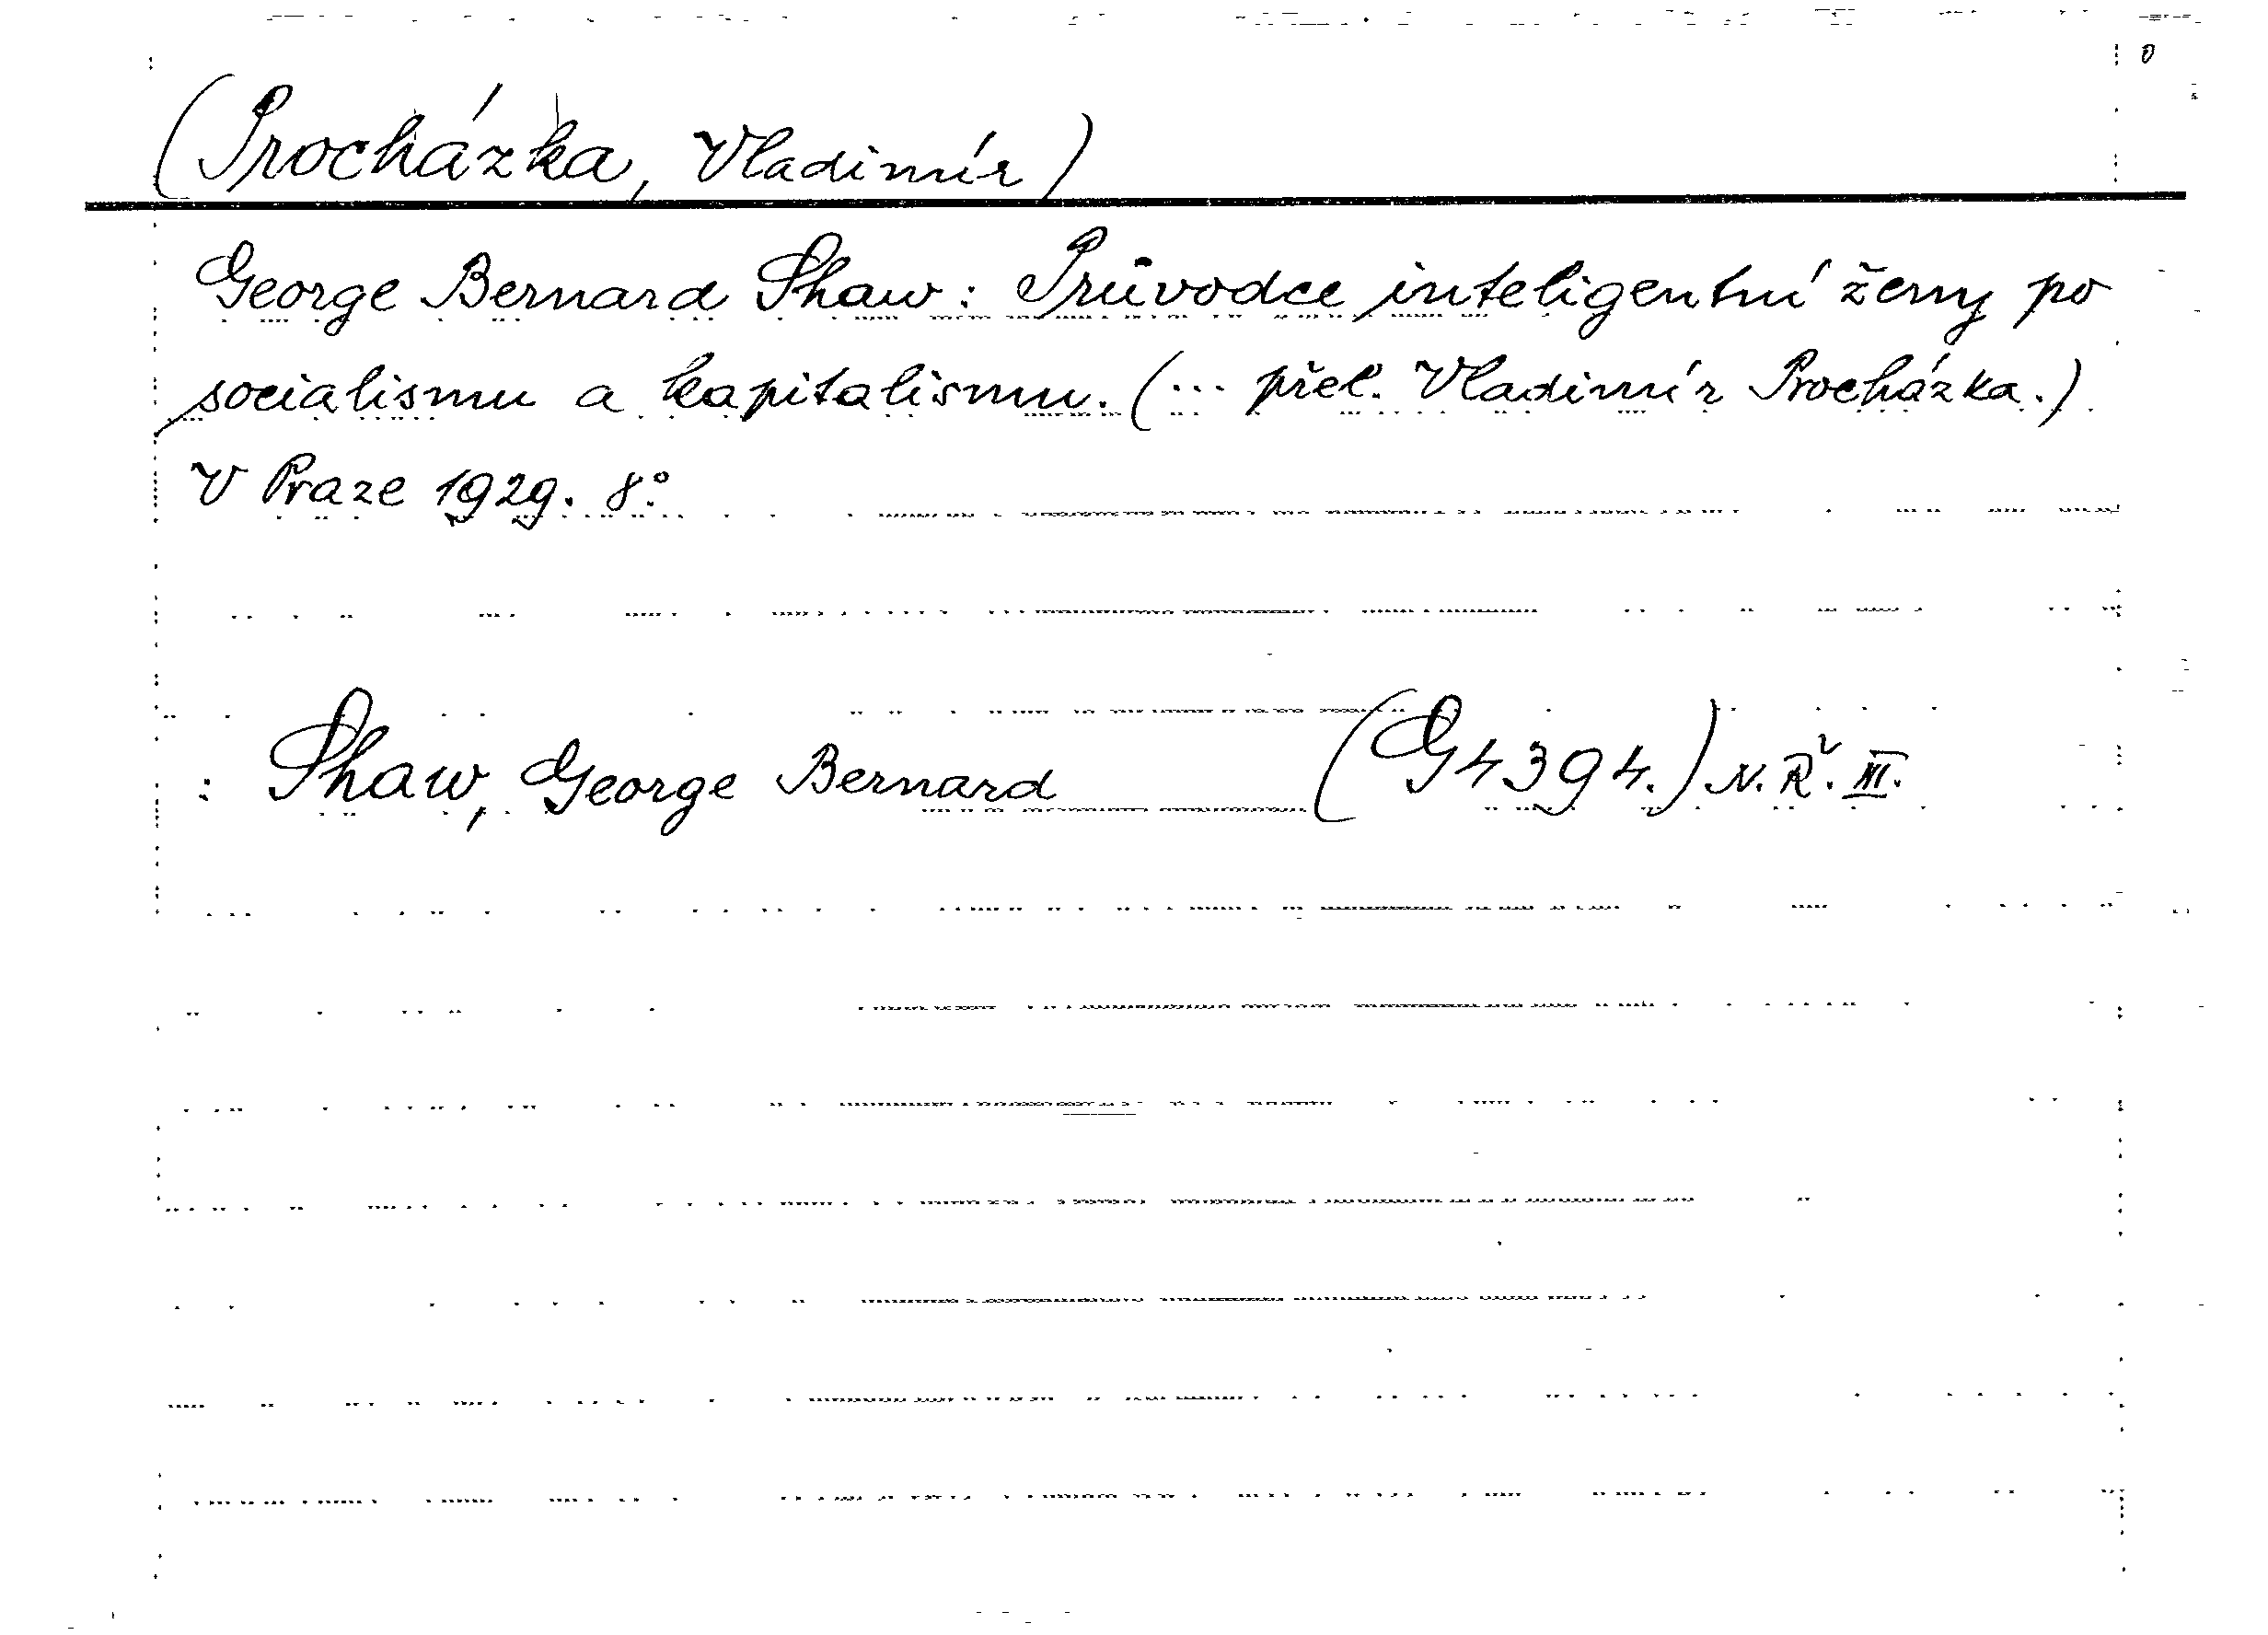 (Procházka, Vladimír)
George Bernard Shaw: Průvodce inteligentní ženy po
socialismu a kapitalismu. (... přel. Vladimír Procházka.)
V Praze 1929. 8°.
: Shaw, George Bernard (G 4394.) N. Ř. III.